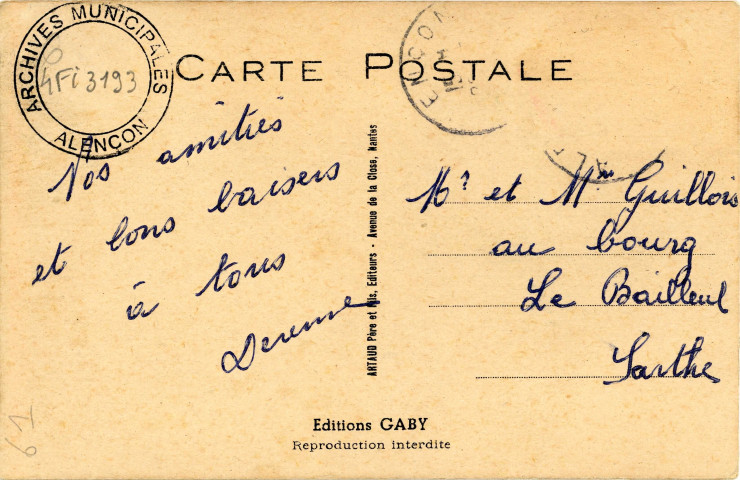 ARCHIVES MUNICIPALES
4Fi3193
ALENÇON
CARTE POSTALE
Nos amitiés
et bons baisers
à tous
ARTAUD Père et Fils, Editeurs - Avenue de la Close, Nantes
Mr et Mme Guillois
au bourg
Le Bailleul
Sarthe
Editions GABY
Reproduction interdite